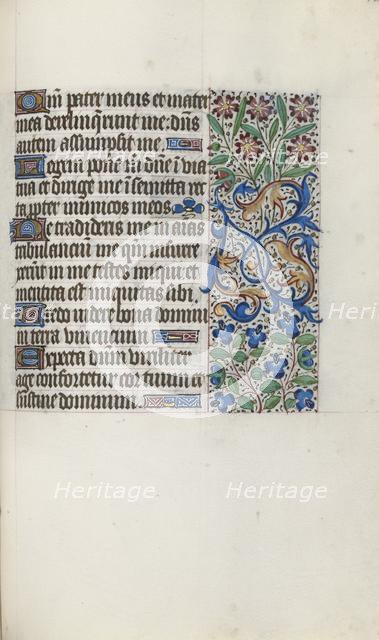 Qm̄ pater meus et mater
mea derelinq̄runt me: dn̄s
autem assumpsit me
Legem pone m̄ dn̄e ī via
tua et dirige me ī semita rec
ta ppter inimicos meos
Ne tradideris me in aīas
tribulanciū me qm̄ insurre
xerūt in me testes iniqui et
mentita est iniquitas sibi
Credo videre bona domini
in terra viuencium
Expecta dn̄m viriliter
age confortetur cor tuum et
sustine dominum
Heritage
Heritage
Heritage
Heritage